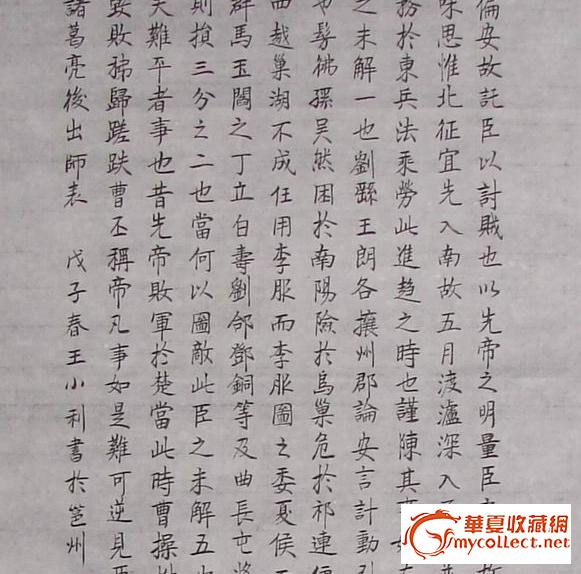 偏安故託臣以討賊也以先帝之明量臣
味思惟北征宜先入南故五月渡瀘深入
務於東兵法乘勞此進趨之時也謹陳其
之未解一也劉繇王朗各據州郡論安言計動
也髣彿孫吳然困於南陽險於烏巢危於祁連
四越巢湖不成任用李服而李服圖之委夏侯
群馬玉閻芝丁立白壽劉郃鄧銅等及曲長屯將
則損三分之二也當何以圖敵此臣之未解五也
夫難平者事也昔先帝敗軍於楚當此時曹操
毀敗秭歸蹉跌曹丕稱帝凡事如是難可逆見臣
諸葛亮後出師表 戊子春王小利書於邕州
華夏收藏網
mycollect.net